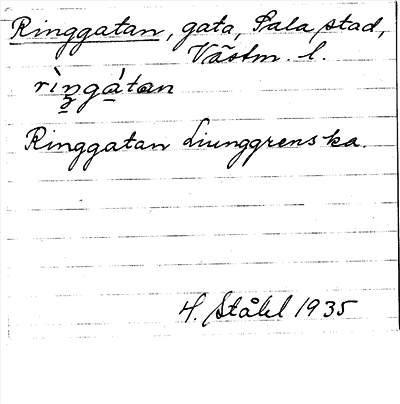 Ringgatan, gata, Sala stad,
Västm. l.
rìŋgátan
Ringgatan Liunggrenska.
H. Ståhl 1935